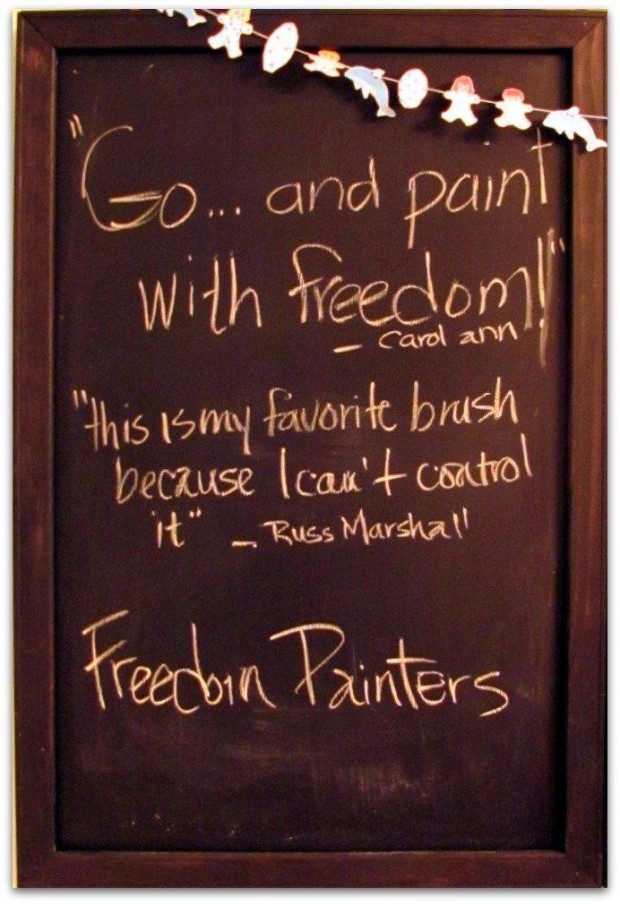 "Go... and paint
with freedom!"
- Carol ann
"this is my favorite brush
because I can't control
it" - Russ Marshall
Freedom Painters